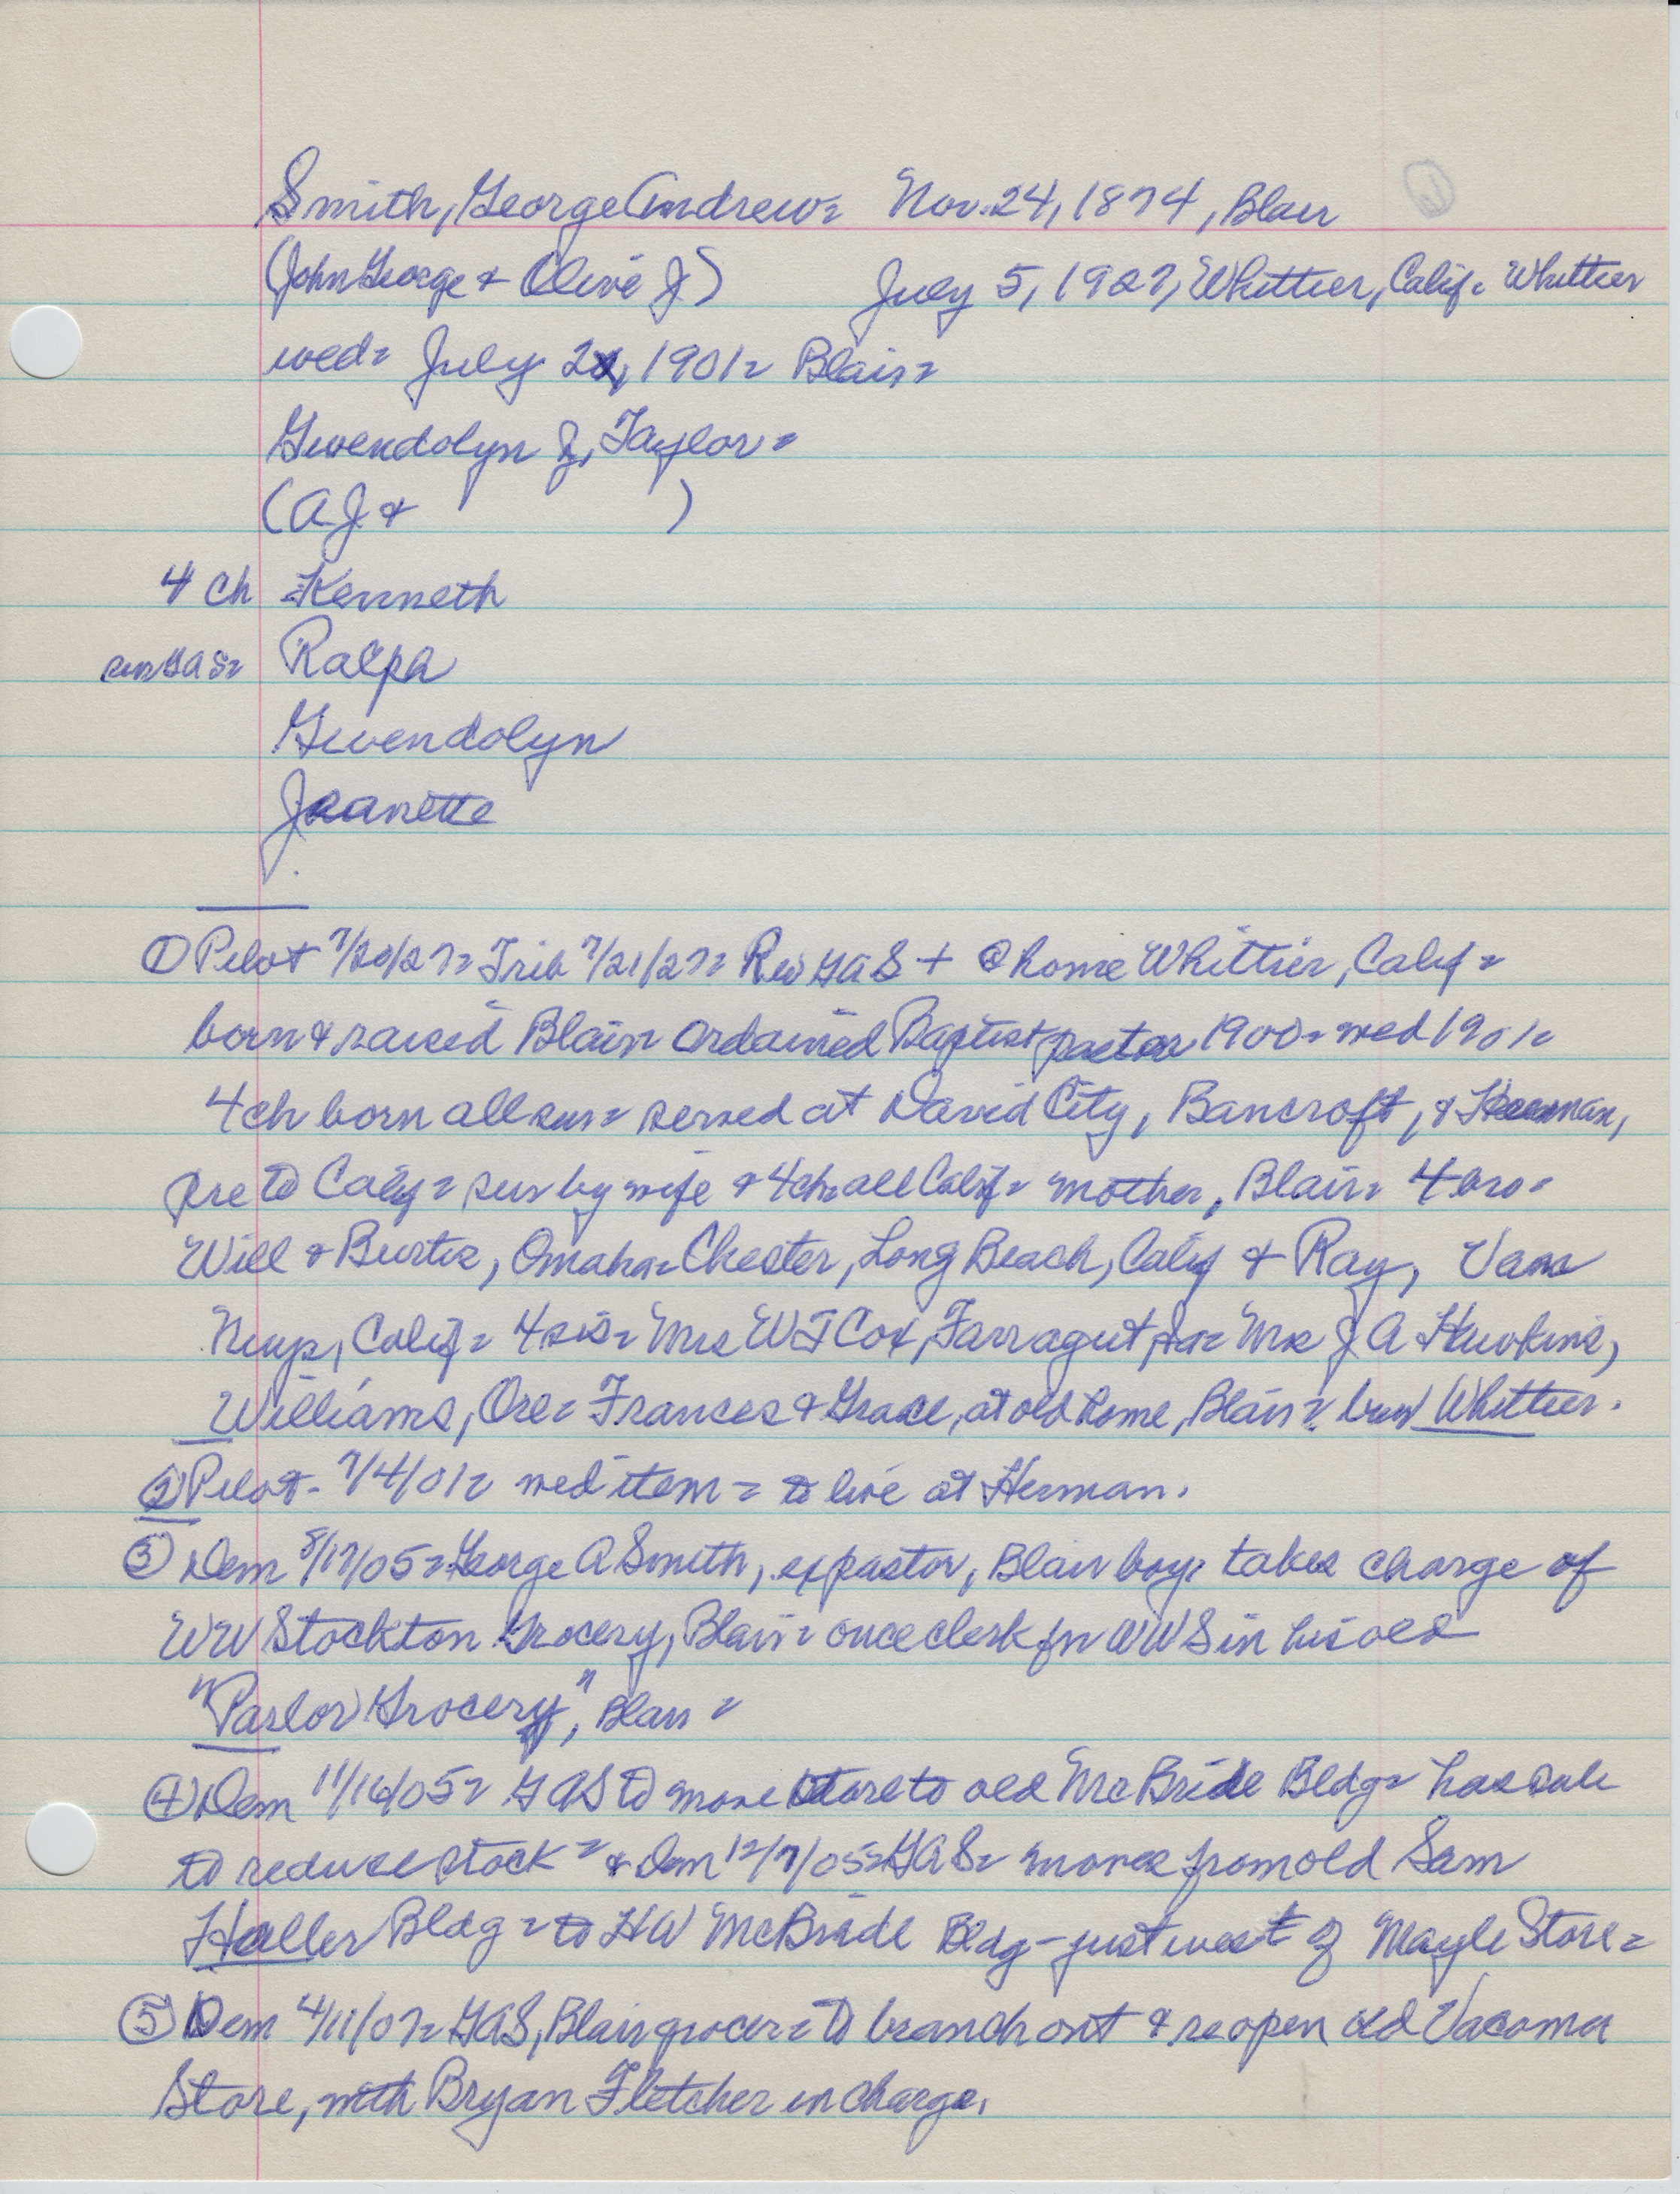 Smith, George Andrew= Nov. 24, 1874, Blair
(John George & Olive J) July 5, 1927, Whittier, Calif= Whittier
wed= July 2, 1901= Blair=
Gwendolyn J, Taylor=
(AJ & )
4 ch =Kenneth
sur GAS= Ralph
Gwendolyn
Jeanette
① Pilot 7/20/27= Trib 7/21/27= Rev GAS + @ home Whittier, Calif=
born & raised Blair= ordained Baptist pastor 1900= wed 1901=
4ch born all sur= served at David City, Bancroft, & Herman,
pre to Calif= sur by wife & 4ch=all Calif= mother, Blair= 4 bro=
Will & Burtis, Omaha=Chester, Long Beach, Calif & Ray, Van
Nuys, Calif= 4 sis= Mrs WT Cox, Farragut, Ia= Mrs J A Hawkins,
Williams, Ore= Frances & Grace, at old home, Blair= bur Whittier.
② Pilot- 7/4/01= wed item= to live at Herman.
③ Dem 8/17/05=George A Smith, expastor, Blair boy: takes charge of
WW Stockton Grocery, Blair= once clerk for WWS in his old
"Parlor Grocery", Blair=
④ Dem 11/16/05= GAS to move store to old McBride Bldg= has sale
to reduce stock= & Dem 12/7/05=GAS= moves from old Sam
Haller Bldg= to HW McBride Bldg-just west of Mayle Store=
⑤ Dem 4/11/07= GAS, Blair grocer= to branch out & reopen old Vacoma
Store, with Bryan Fletcher in charge.